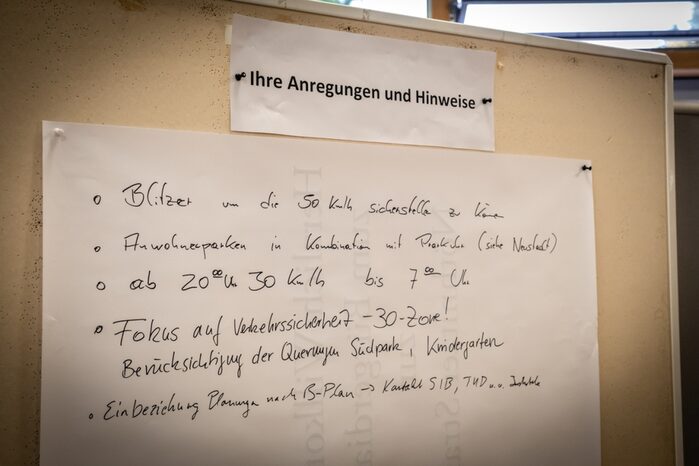 Ihre Anregungen und Hinweise
Blitzer um die 50 km/h sicherstellen zu können
Anwohnerparken in Kombination mit (siehe Neustadt)
ab 20⁰⁰ Uhr 30 km/h bis 7⁰⁰ Uhr
Fokus auf Verkehrssicherheit - 30-Zone!
Berücksichtigung der Querungen Südpark, Kindergarten
Einbeziehung Planungen nach B-Plan → Kontakt SIB, TUD u.a.